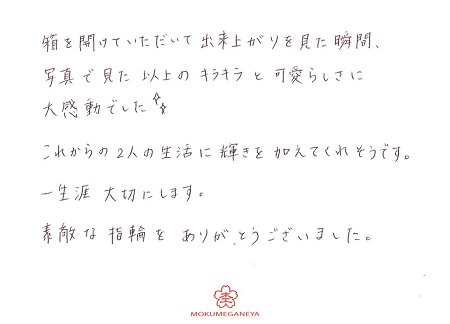 箱を開けていただいて出来上がりを見た瞬間、
写真で見た以上のキラキラと可愛らしさに
大感動でした✨
これからの2人の生活に輝きを加えてくれそうです。
一生涯大切にします。
素敵な指輪をありがとうございました。
MOKUMEGANEYA